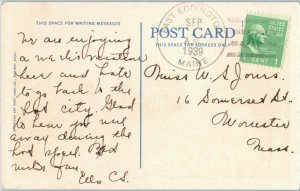 THIS SPACE FOR WRITING MESSAGES
POST CARD
THIS SPACE FOR ADDRESS ONLY
EAST EDDINGTON
SEP
1939
MAINE
1 CENT 1
We are enjoying
a
here and hate
to go back to the
hot city. Glad
to hear you
away during the
hot spell.
Miss W. S. Jones.
16 Somerset St.
Worcester
Mass.